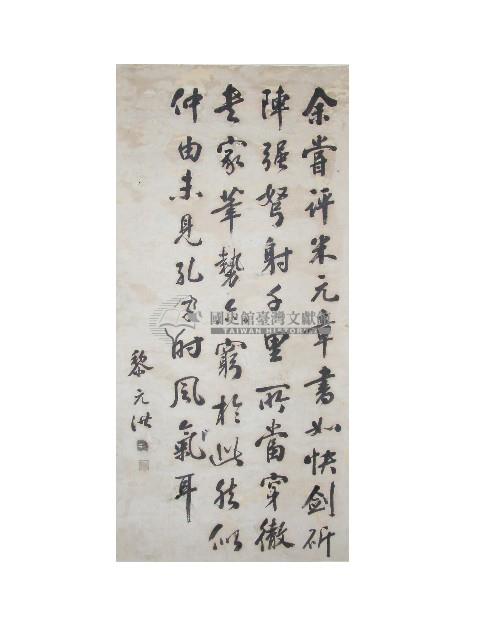 余嘗評米元章書如快劍斫
陣强弩射千里所當穿徹
書家筆勢亦窮於此然似
仲由未見孔子時風氣耳
黎元洪
國史館臺灣文獻館
TAIWAN HISTORICA